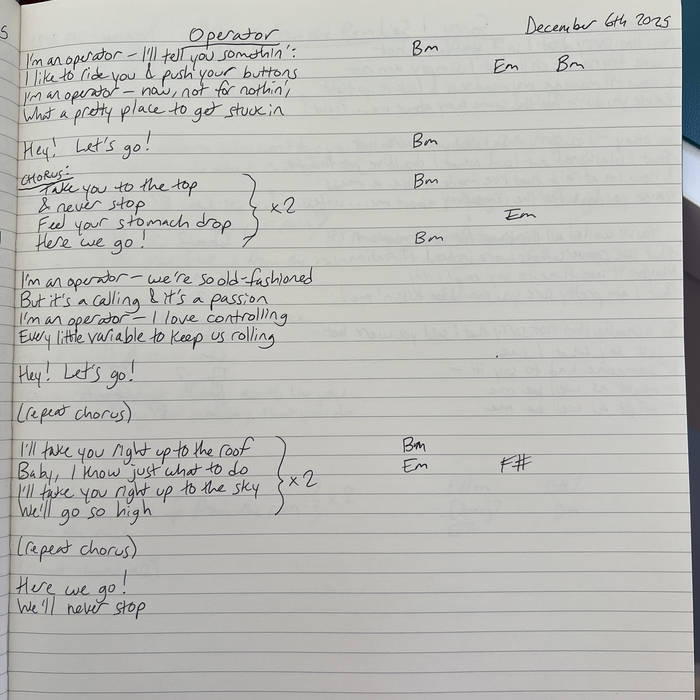 S
Operator December 6th 2025
I'm an operator – I'll tell you somethin': Bm
I like to ride you & push your buttons Em Bm
I'm an operator – now, not for nothin',
What a pretty place to get stuck in
Hey! Let's go! Bm
CHORUS:
Take you to the top Bm
& never stop x2
Feel your stomach drop Em
Here we go! Bm
I'm an operator – we're so old-fashioned
But it's a calling & it's a passion
I'm an operator – I love controlling
Every little variable to keep us rolling
Hey! Let's go!
(repeat chorus)
I'll take you right up to the roof Bm
Baby, I know just what to do Em F#
I'll take you right up to the sky x2
We'll go so high
(repeat chorus)
Here we go!
We'll never stop